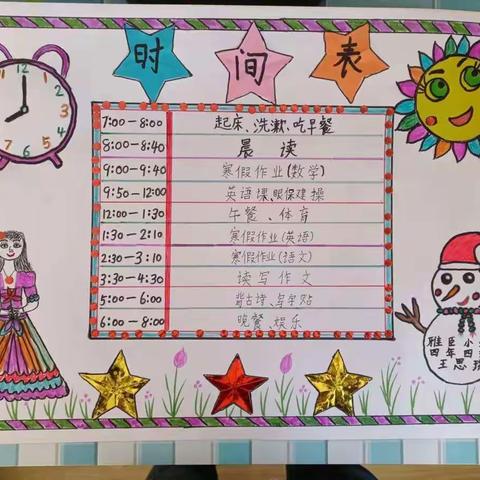 时间表
12
7:00-8:00 起床、洗漱、吃早餐
8:00-8:40 晨读
9:00-9:40 寒假作业(数学)
9:50-12:00 英语课、眼保健操
12:00-1:30 午餐、体育
1:30-2:10 寒假作业(英语)
2:30-3:10 寒假作业(语文)
3:30-4:30 读写作文
5:00-6:00 背古诗、写字帖
6:00-8:00 晚餐、娱乐
雅臣小
四年四
王思